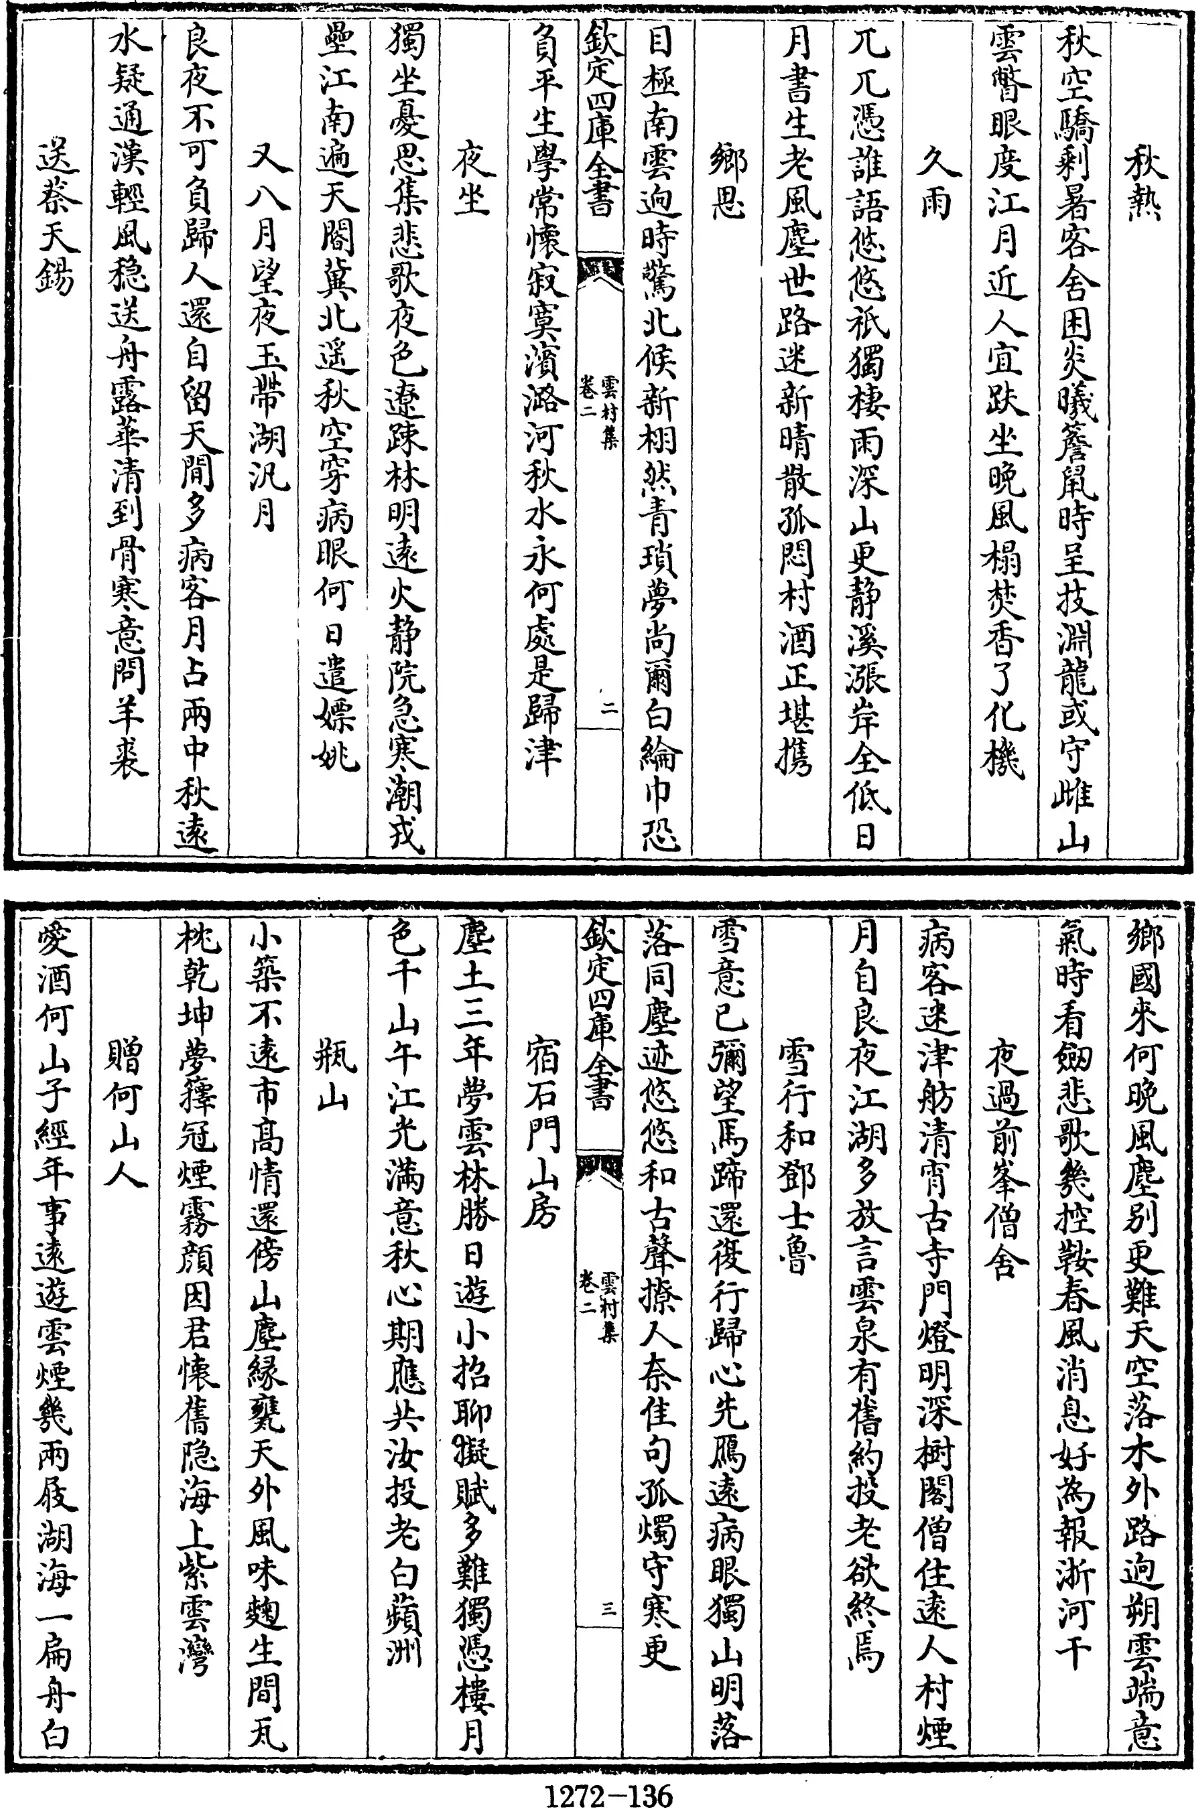 秋熱
秋空驕剩暑客舍困炎曦簷鼠時呈技淵龍或守雌山
雲瞥眼度江月近人宜趺坐晚風榻焚香了化機
久雨
兀兀憑誰語悠悠祇獨棲雨深山更静溪漲岸全低日
月書生老風塵世路迷新晴散孤悶村酒正堪携
鄉思
目極南雲逈時驚北候新栩然青瑣夢尚爾白綸巾恐
欽定四庫全書
雲村集
卷二
二
負平生學常懷寂寞濱潞河秋水永何處是歸津
夜坐
獨坐憂思集悲歌夜色遼踈林明遠火静院急寒潮戎
壘江南遍天閽冀北遥秋空穿病眼何日遣嫖姚
又八月望夜玉帶湖汎月
良夜不可負歸人還自留天閒多病客月占兩中秋遠
水疑通漢輕風稳送舟露華清到骨寒意問羊裘
送蔡天錫
鄉國來何晚風塵别更難天空落木外路逈朔雲端意
氣時看劒悲歌幾控鞍春風消息好為報浙河干
夜過前峯僧舍
病客迷津舫清宵古寺門燈明深樹閣僧住遠人村煙
月自良夜江湖多放言雲泉有舊約投老欲終焉
雪行和鄧士魯
雪意已彌望馬蹄還復行歸心先鴈遠病眼獨山明落
落同塵迹悠悠和古聲撩人奈佳句孤燭守寒更
欽定四庫全書
雲村集
卷二
三
宿石門山房
塵土三年夢雲林勝日遊小招聊擬賦多難獨憑樓月
色千山午江光滿意秋心期應共汝投老白蘋洲
瓶山
小築不遠市高情還傍山塵緣甕天外風味麯生間瓦
枕乾坤夢籜冠煙霧顔因君懐舊隐海上紫雲灣
贈何山人
愛酒何山子經年事遠遊雲煙幾兩屐湖海一扁舟白
1272-136